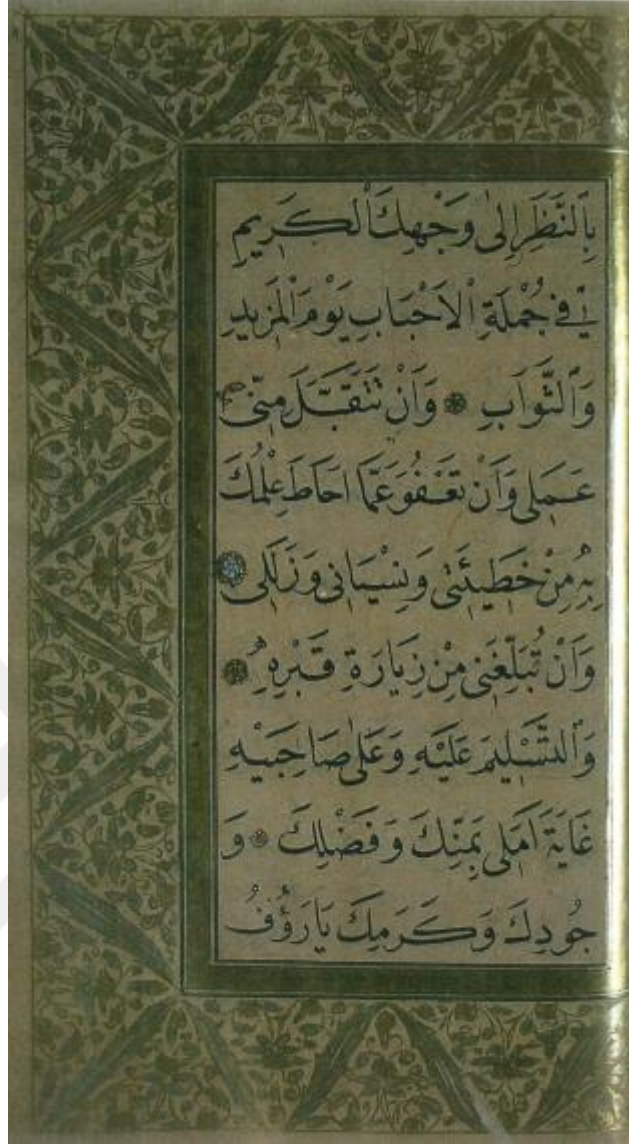 بِالنَّظَرِ اِلٰى وَجْهِكَ الْكَرِيمِ
فِي جُمْلَةِ الْاَحْبَابِ يَوْمَ الْمَزِيدِ
وَالثَّوَابِ ۞ وَاَنْ تَتَقَبَّلَ مِنِّى
عَمَلِى وَاَنْ تَعْفُوَ عَمَّا اَحَاطَ عِلْمُكَ
بِهِ مِنْ خَطِيئَتِى وَنِسْيَانِى وَزَلَلِى ۞
وَاَنْ تُبَلِّغَنِى مِنْ زِيَارَةِ قَبْرِهِ ۞
وَالتَّسْلِيمَ عَلَيْهِ وَعَلٰى صَاحِبَيْهِ
غَايَةَ اَمَلِى بِمَنِّكَ وَفَضْلِكَ ۞ وَ
جُودِكَ وَكَرَمِكَ يَا رَؤُفُ